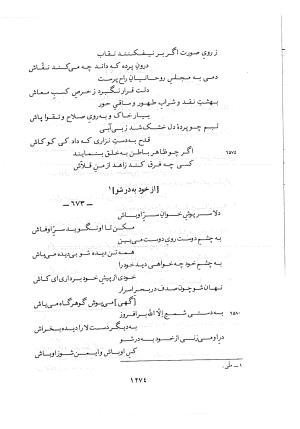 ز روی صورت اگر بر نیفکنند نقاب
درون پرده که داند چه می‌کند نقّاش
دمی به مجلس روحانیان راح پرست
دلت قرار نگیرد ز حرص کسب معاش
بهشت نقد و شراب طهور و ساقی حور
بیار خاک و به روی صلاح و تقوا پاش
لبم چو پردهٔ دل خشک شد ز بی‌آبی
قدح به دست نزاری که داد کی کو کاش
۱۵۷۵ اگر چو ظاهر باطن به خلق بنمایند
کسی چه فرق کند زاهد از من قلاّش
[از خود به در شو]۱
ـ ۶۷۳ ـ
دلا سرپوش خوان سرّ اوباش
مکن تا او نگوید سرّ او فاش
به چشم دوست روی دوست می‌بین
همه تن دیده شو بی دیده می‌باش
به چشم خود چه خواهی دید خود را
خودی از پیش خود برداری ای کاش
نهان شو چون صدف در بحر اسرار
[گهی] می‌پوش گوهر گاه می‌پاش
۱۵۸۰ به دستی شمع الّا الله برافروز
به دیگر دست لا را دیده بخراش
در او می‌زنی از خود به در شو
کس او باش و ایمن شو ز اوباش
۱ ـ طی.
۱۲۷۴